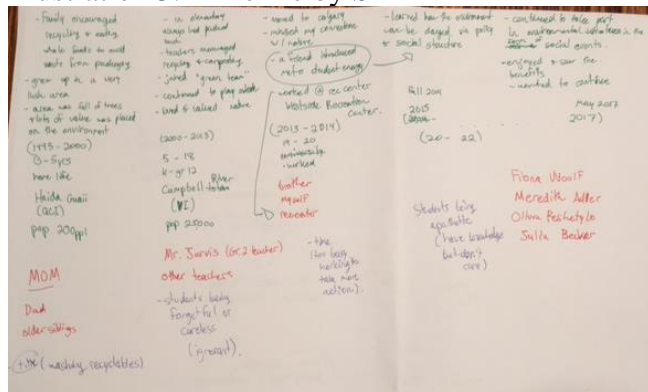 - Family encouraged
recycling & eating
whole foods to avoid
waste from packaging
- grew up in a very
lush area
- area was full of trees
& lots of value was placed
on the environment
(1995-2000)
0-5yrs
home life
Haida Gwaii
pop 200ppl
MOM
Dad
older siblings
(washing recyclables)
- in elementary
always had packed
lunch
- teachers encouraged
recycling & composting
- joined "green team"
- continued to play outside
- loved & valued nature
(2000-2013)
5 - 18
k-gr 12
Campbell River
(VI)
pop
Mr. Jarvis (Gr. 2 teacher)
other teachers
- students being
forgetful or
careless
(ignorant).
- moved to calgary
- missed my connection
w/ nature
- a friend introduced
me to student energy
- worked @ rec center
Westside Recreation
Center.
(2013-2014)
19 - 20
university
- worked
brother
myself
rec center
- time
working to
take more
action).
- learned how the environment
can be changed via policy
& social structure
Fall 2014
2015
(20 - 22)
Students being
apathetic
(have knowledge
but don't
care)
- continued to take part
in environmental in the
form of social events.
- enjoyed & saw the
benefits
- wanted to continue
May 2017
2017)
Fiona Woolf
Meredith Adler
Julia Becker